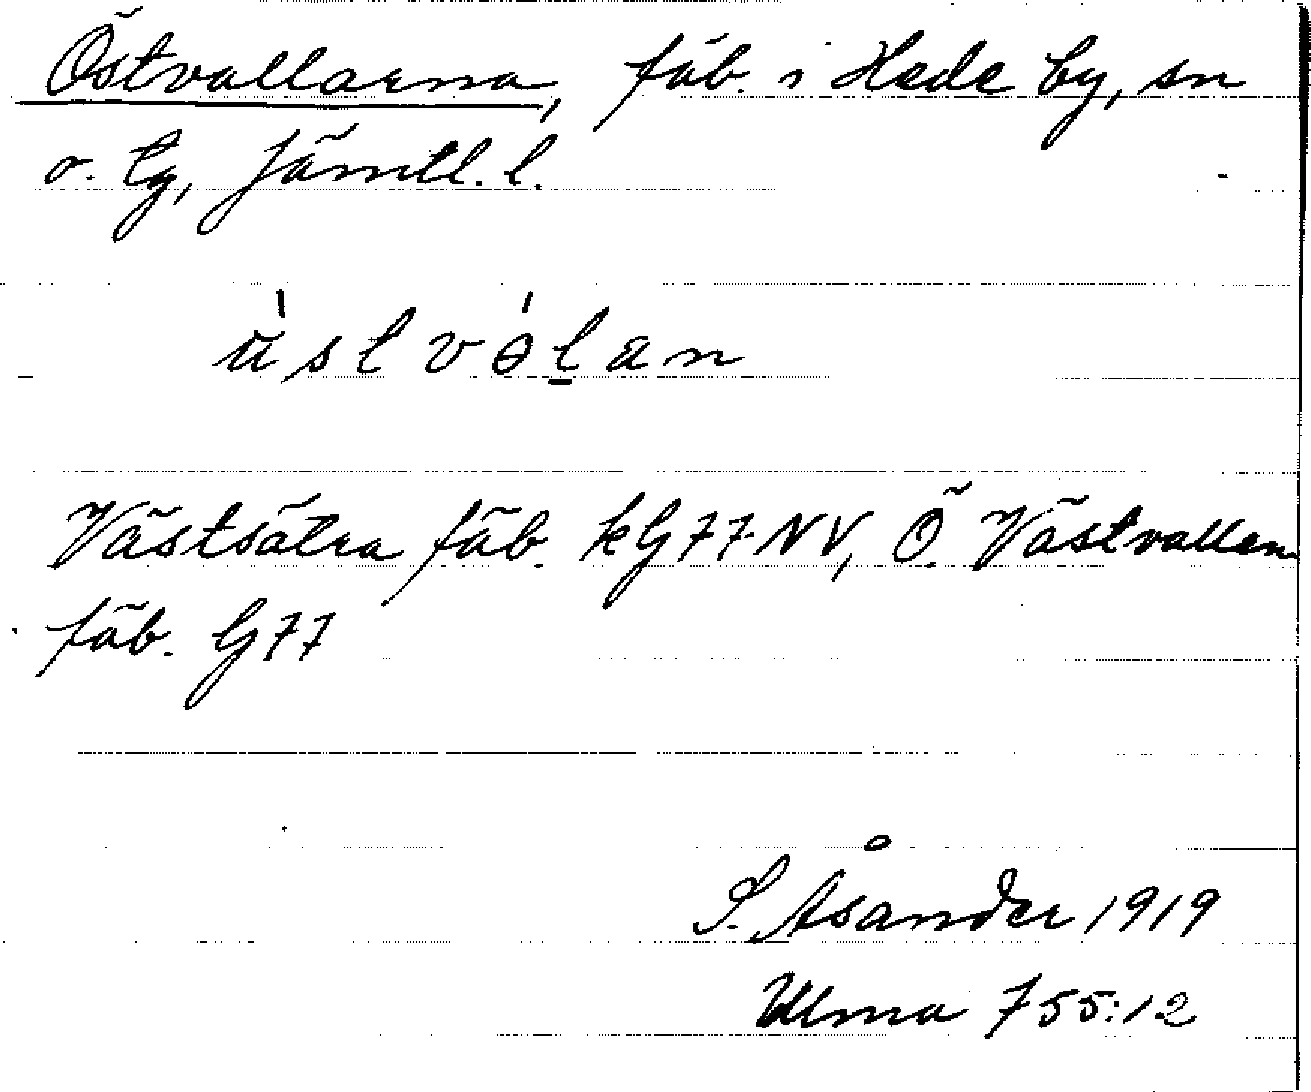 Östvallarna, fäb. i Hede by, sn
o. tg, Jämtl. l.
Västsätra fäb. kG77 NV, Ö. Västvallen
fäb. G77
S. Åsander 1919
Ulma 755:12